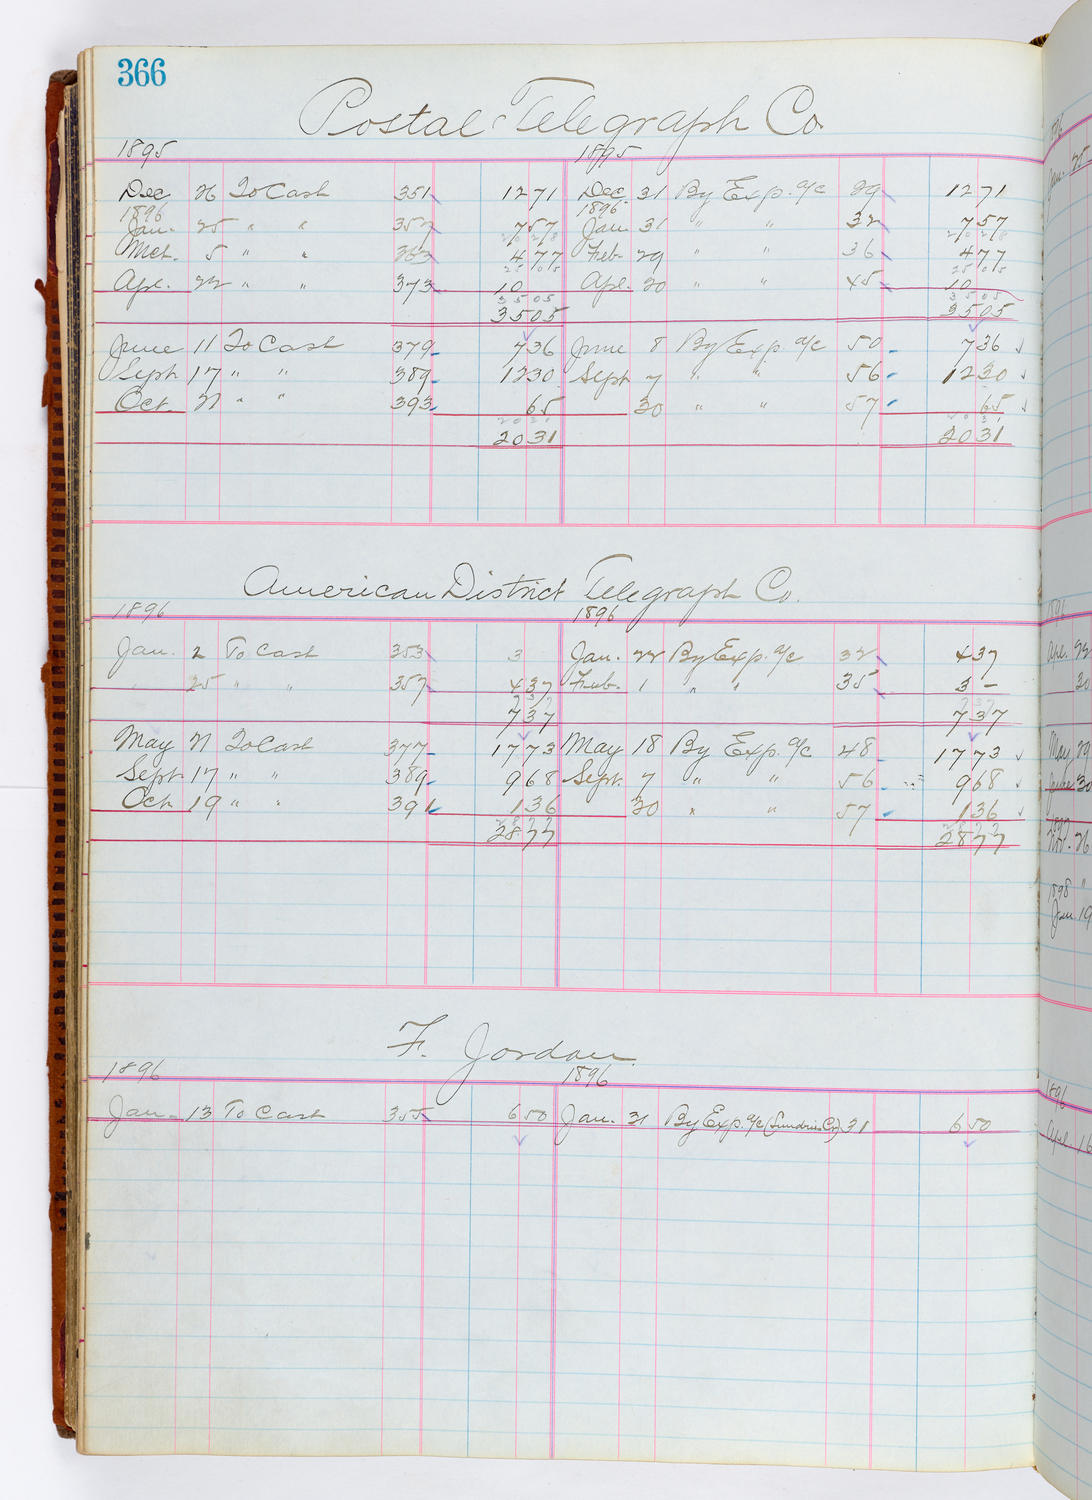 366
Postal Telegraph Co.
1895 1895
Dec 26 To Cash 351 12 71 Dec. 31 By Exp. a/c 29 12 71
1896 1896
Jan. 25 " " 357 7 57 Jan 31 " " 32 7 57
20 28 20 28
Mch. 5 " " 363 4 77 Feb. 29 " " 36 4 77
25 05 25 05
Apr. 22 " " 373 10 Apr. 30 " " 45 10
35 05 35 05
35 05 35 05
June 11 To Cash 379 7 36 June 8 By Exp. a/c 50 7 36
Sept 17 " " 389 12 30 Sept 7 " " 56 12 30
Oct. 21 " " 393 65 30 " " 57 65
20 31 20 31
20 31 20 31
American District Telegraph Co.
1896 1896
Jan. 2 To Cash 353 3 Jan. 22 By Exp. a/c 32 4 37
25 " " 357 4 37 Feb. 1 " " 35 3 -
7 37 7 37
7 37 7 37
May 21 To Cash 377 17 73 May 18 By Exp. a/c 48 17 73
Sept 17 " " 389 9 68 Sept. 7 " " 56 9 68
Oct 19 " " 391 1 36 30 " " 57 1 36
28 77 28 77
28 77 28 77
F. Jordan
1896 1896
Jan. 13 To Cash 355 6 50 Jan. 31 By Exp. a/c (Sundries Cr) 31 6 50